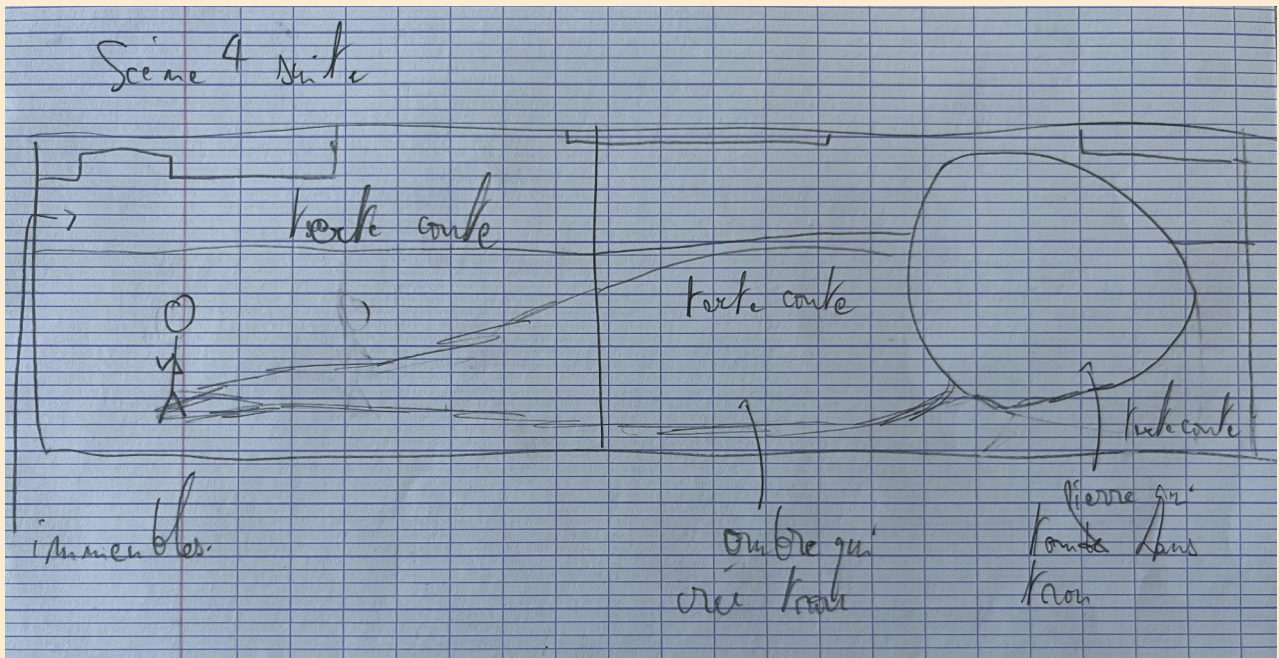 Scène 4 suite
texte conte
texte conte
texte conte
immeubles.
ombre qui
crée trou
Pierre qui
tombe dans
trou